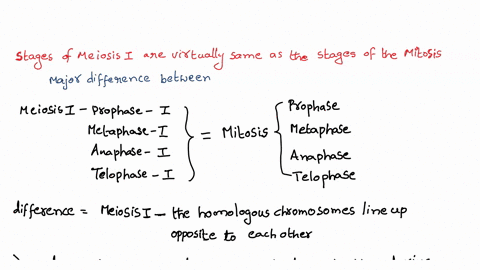 Stages of Meiosis I are virtually same as the stages of the Mitosis
Major difference between
Meiosis I - Prophase - I
Metaphase - I
Anaphase - I
Telophase - I
= Mitosis
Prophase
Metaphase
Anaphase
Telophase
difference = Meiosis I - the homologous chromosomes line up
opposite to each other